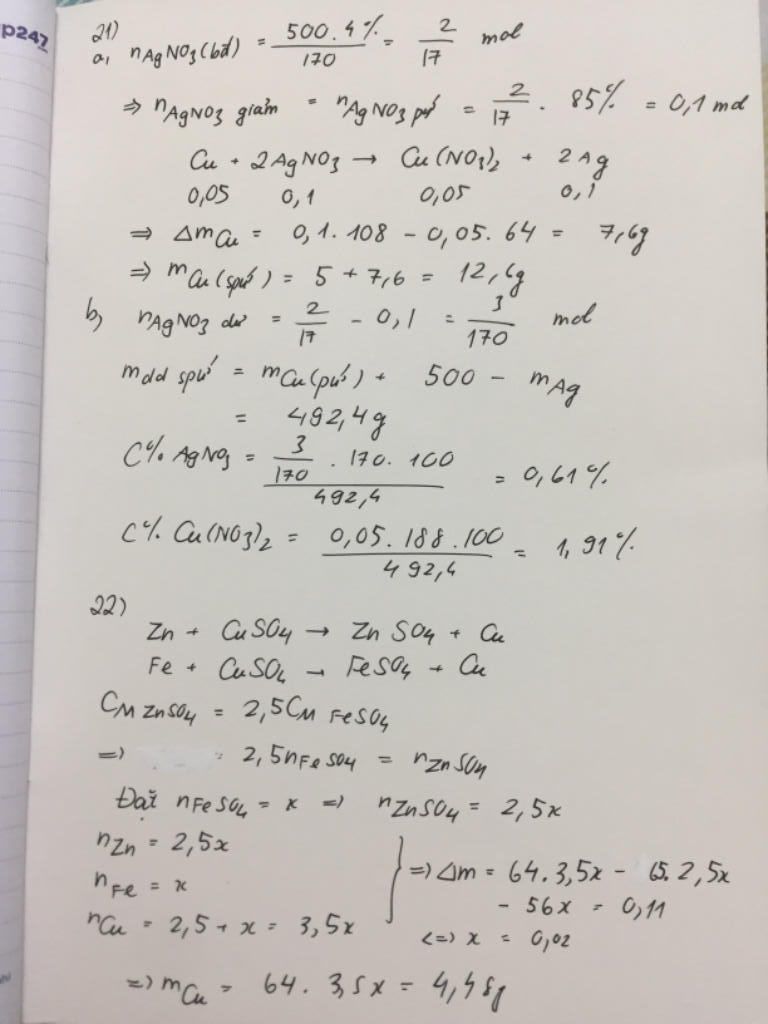 p247
21)
a, nAgNO3(bđ) = 500.4% / 170 = 2/17 mol
⇒ nAgNO3 giảm = nAgNO3 pứ = 2/17 . 85% = 0,1 mol
Cu + 2AgNO3 → Cu(NO3)2 + 2Ag
0,05 0,1 0,05 0,1
⇒ ΔmCu = 0,1.108 - 0,05.64 = 7,6g
⇒ mCu(spứ) = 5 + 7,6 = 12,6g
b, nAgNO3 dư = 2/17 - 0,1 = 3/170 mol
mdd spứ = mCu(pứ) + 500 - mAg
= 492,4g
C% AgNO3 = 3/170 . 170. 100 / 492,4 = 0,61%
C% Cu(NO3)2 = 0,05.188.100 / 492,4 = 1,91%
22)
Zn + CuSO4 → ZnSO4 + Cu
Fe + CuSO4 → FeSO4 + Cu
CM ZnSO4 = 2,5CM FeSO4
=> 2,5nFeSO4 = nZnSO4
Đặt nFeSO4 = x => nZnSO4 = 2,5x
nZn = 2,5x
nFe = x
nCu = 2,5 + x = 3,5x
} => Δm = 64.3,5x - 65.2,5x
- 56x = 0,11
<=> x = 0,02
=> mCu = 64. 3,5x = 4,48g